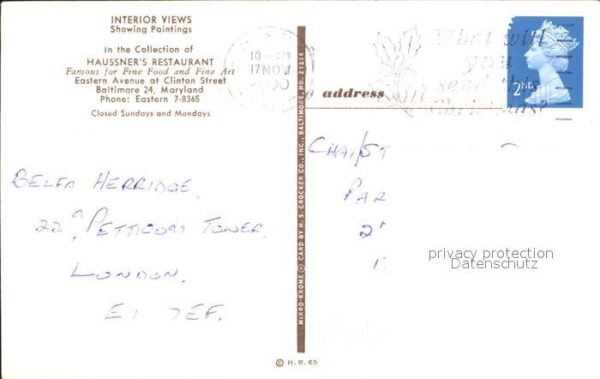 INTERIOR VIEWS
Showing Paintings
In the Collection of
HAUSSNER'S RESTAURANT
Famous for Fine Food and Fine Art
Eastern Avenue at Clinton Street
Baltimore 24, Maryland
Phone: Eastern 7-8365
Closed Sundays and Mondays
10 - AM
17 NOV
What will
you
send this
Christmas?
2ND
address
BELFA HERRIDGE,
22A, PETTICOAT TOWER
LONDON.
E1 7EF.
MIRRO-KROME © CARD BY H. S. CROCKER CO., INC., BALTIMORE, MD. 21215
PAR
2
privacy protection
Datenschutz
© H. R. 65